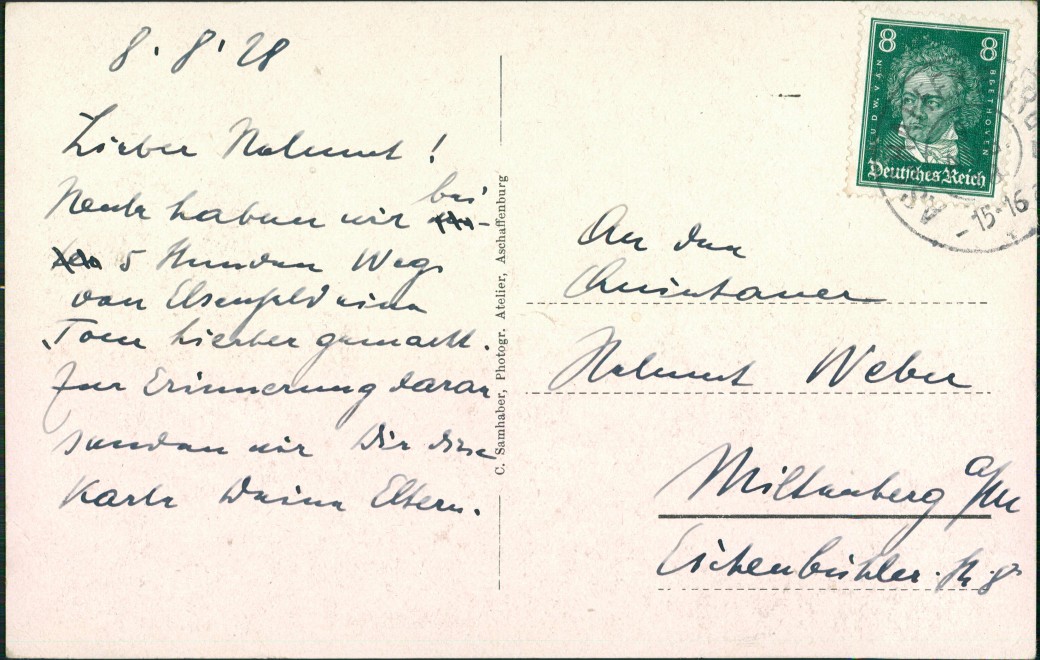 8. 8' 28
Lieber Helmut!
Heute haben wir bei
5 Stunden Wegs
von Elsenfeld eine
Tour hierher gemacht.
Zur Erinnerung daran
senden wir Dir diese
Karte Deine Eltern.
C. Samhaber, Photogr. Atelier, Aschaffenburg
8 8
LUDW. VAN BEETHOVEN
Deutsches Reich
-15-16
An den
Quintaner
Helmut Weber
Miltenberg a/M
Eichenbühler. Str. 8